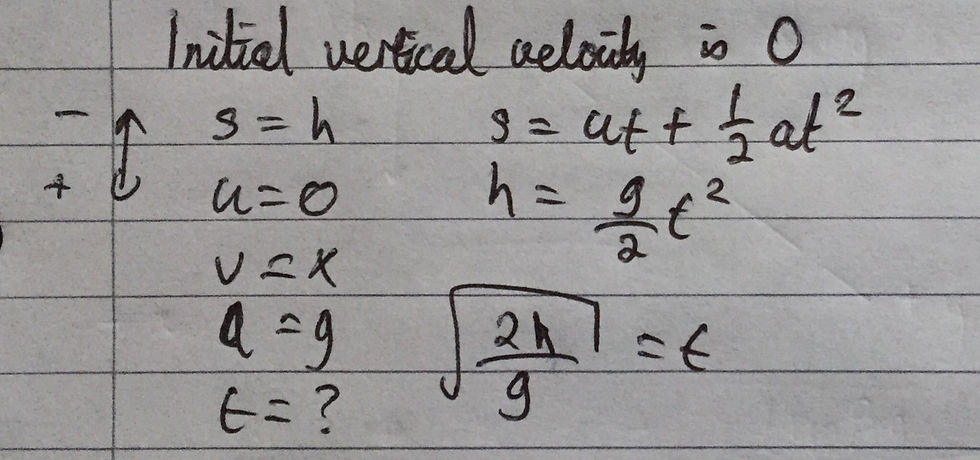 Initial vertical velocity is 0
- s = h s = ut + 1/2 at²
+ u = 0 h = g/2 t²
v = x
a = g √(2h/g) = t
t = ?